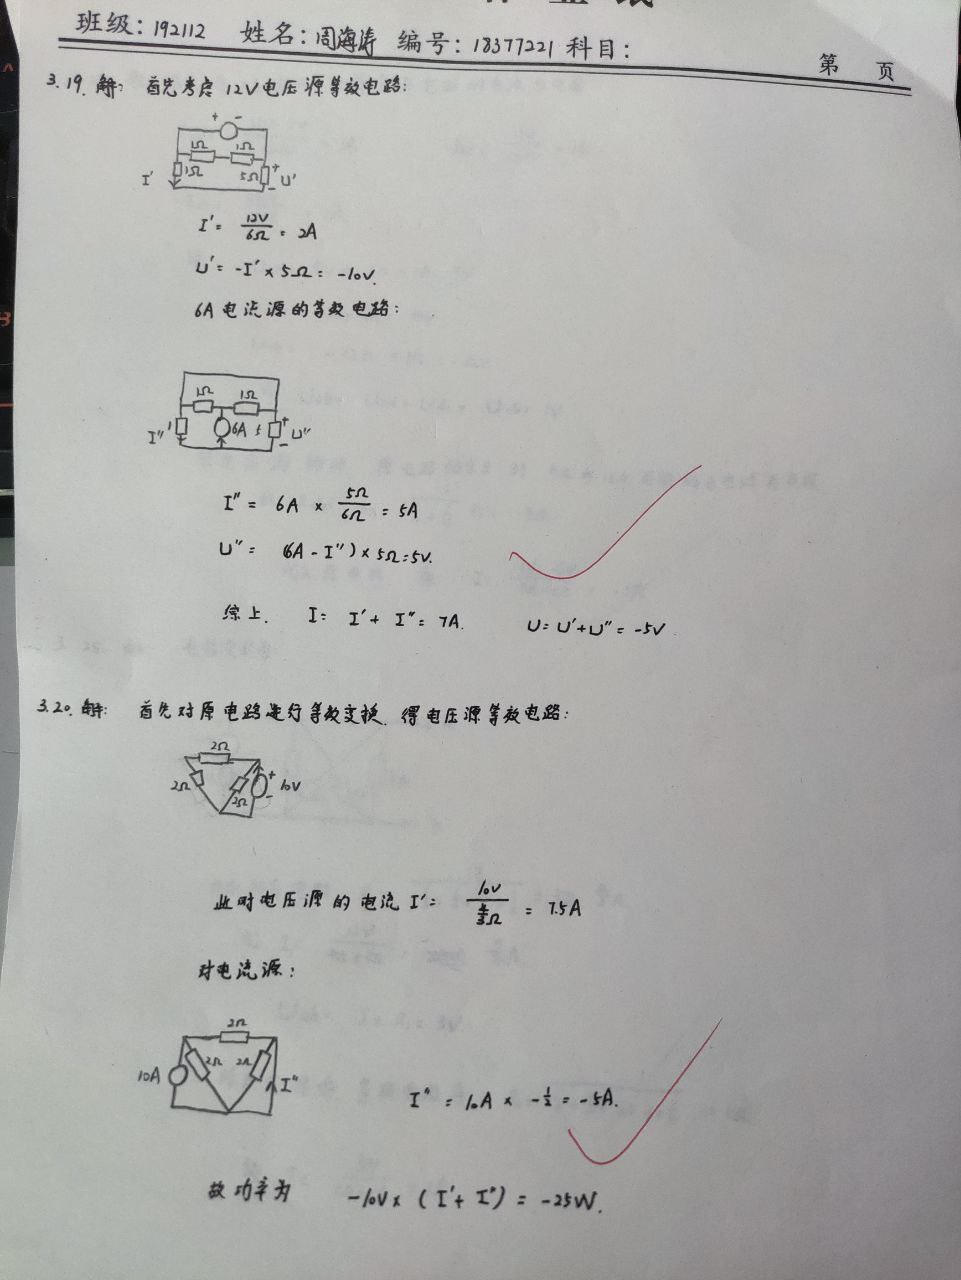 班级: 192112 姓名: 周海涛 编号: 18377221 科目:
第 页
3.19. 解: 首先考虑 12V 电压源等效电路:
+ -
1Ω 1Ω
I' 1Ω 5Ω + U' -
I' = 12V/6Ω = 2A
U' = -I' × 5Ω = -10V.
6A 电流源的等效电路:
1Ω 1Ω
I'' 1 6A 5 + U'' -
I'' = 6A × 5Ω/6Ω = 5A
U'' = (6A - I'') × 5Ω = 5V.
综上. I = I' + I'' = 7A. U = U' + U'' = -5V
3.20. 解: 首先对原电路进行等效变换, 得电压源等效电路:
2Ω
2Ω 2Ω + 10V -
此时电压源的电流 I' = 10V/(4/3 Ω) = 7.5A
对电流源:
2Ω
10A 2Ω 2Ω I''
I'' = 10A × -1/2 = -5A.
故功率为 -10V × (I' + I'') = -25W.